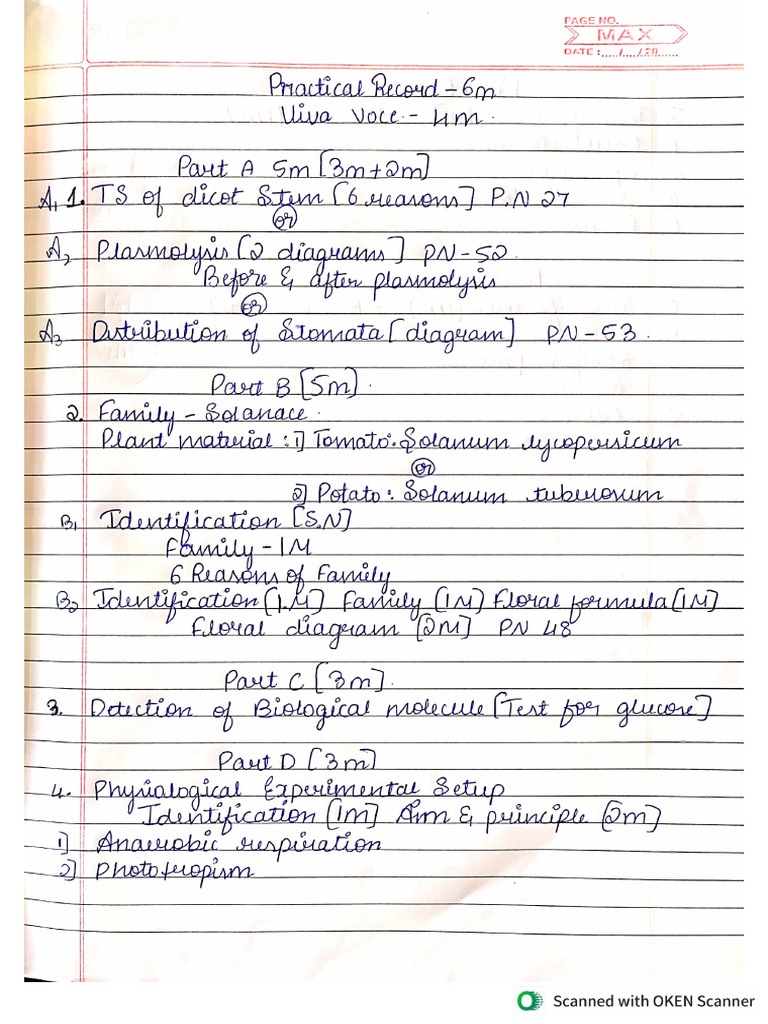 PAGE NO.
MAX
DATE :...../..../20......
Practical Record - 6m
Viva voce - 4m.
Part A 5m [3m+2m]
A1 1. TS of dicot Stem [6 reasons] P.N 27
or
A2 Plasmolysis [2 diagrams] PN-52
Before & after plasmolysis
or
A3 Distribution of Stomata [diagram] PN-53.
Part B [5m].
2. Family - Solanace.
Plant material : 1] Tomato: Solanum lycopersicum
or
2] Potato: Solanum tuberosum
B1 Identification [S.N]
Family - 1M
6 Reasons of Family
B2 Identification [1M] Family [1M] Floral formula [1M]
Floral diagram [2M] PN 48
Part C [3m].
3. Detection of Biological molecule [Test for glucose]
Part D [3m]
4. Physialogical Experimental Setup
Identification [1m] Aim & principle [2m]
1] Anaerobic respiration
2] Phototropism
Scanned with OKEN Scanner